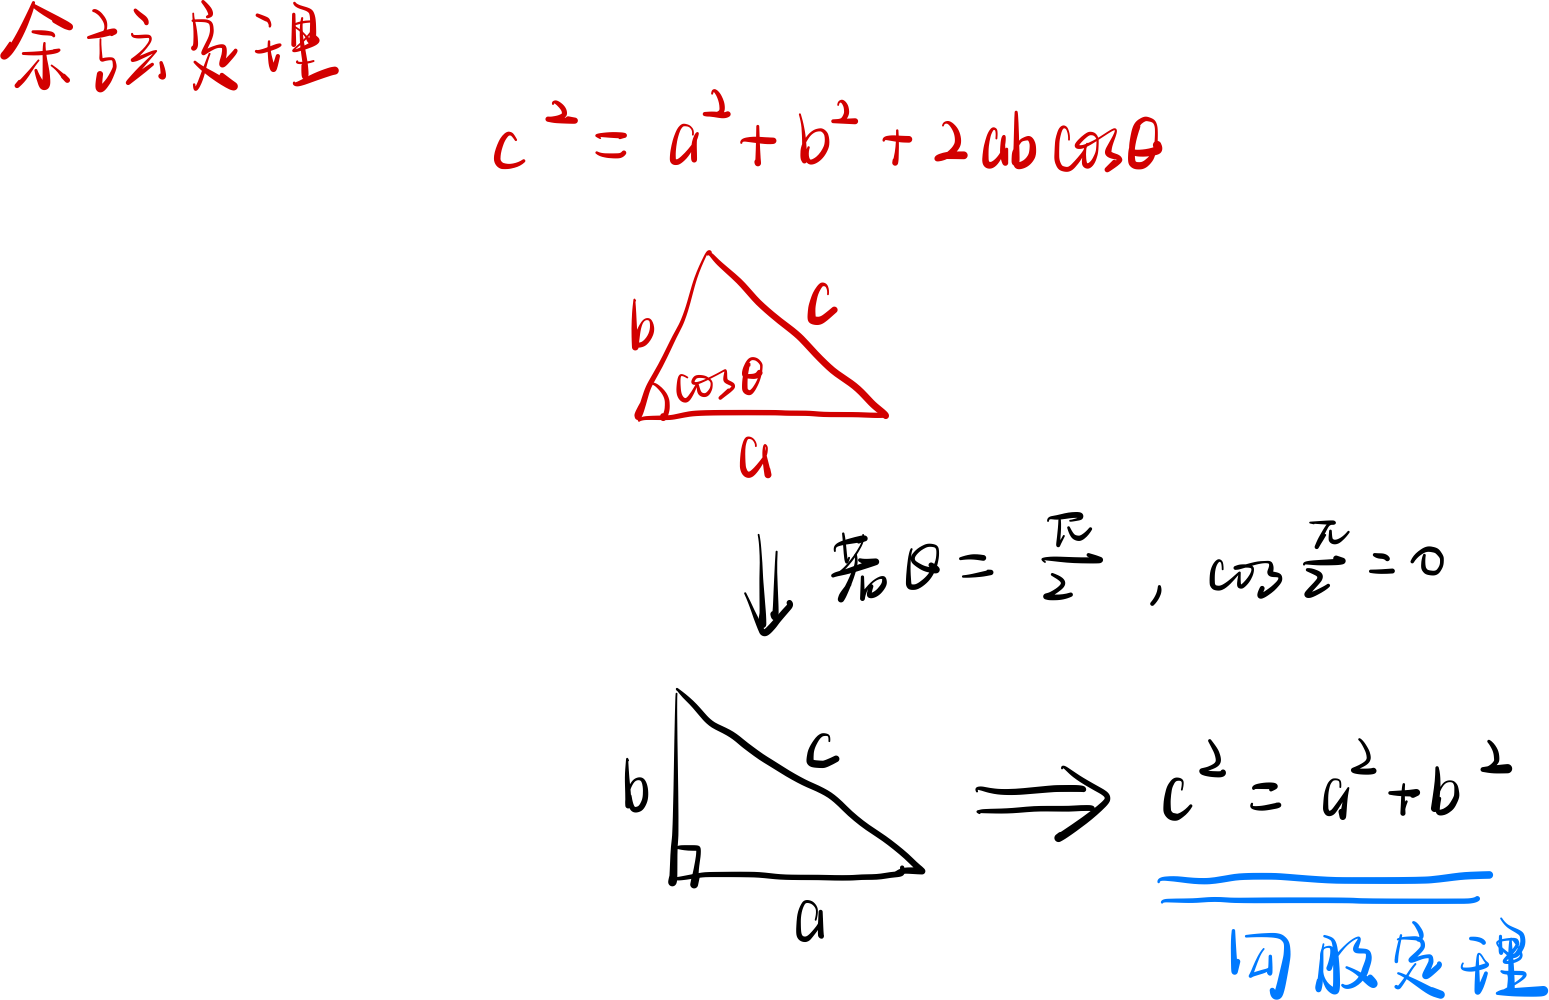 余弦定理
c² = a² + b² + 2ab cosθ
b
c
cosθ
a
若 θ = π/2 , cos π/2 = 0
b
c
a
c² = a² + b²
勾股定理